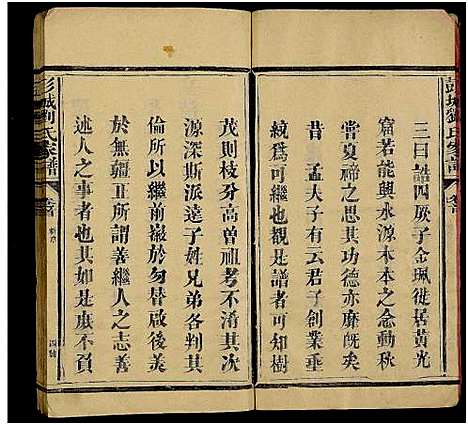 彭城劉氏家譜
三曰誥四族子金珮徙居黄光
窩若能與水源木本之念動秋
當夏禘之思其功德亦靡旣矣
昔孟夫子有云君子創業垂
統爲可繼也觀是譜者可知樹
茂則枝分高曾祖考不淆其次
源深斯派遠子姓兄弟各判其
倫所以繼前徽於勿替啟後美
於無疆正所謂善繼人之志善
述人之事者也夫如是庶不負
彭城劉氏家譜